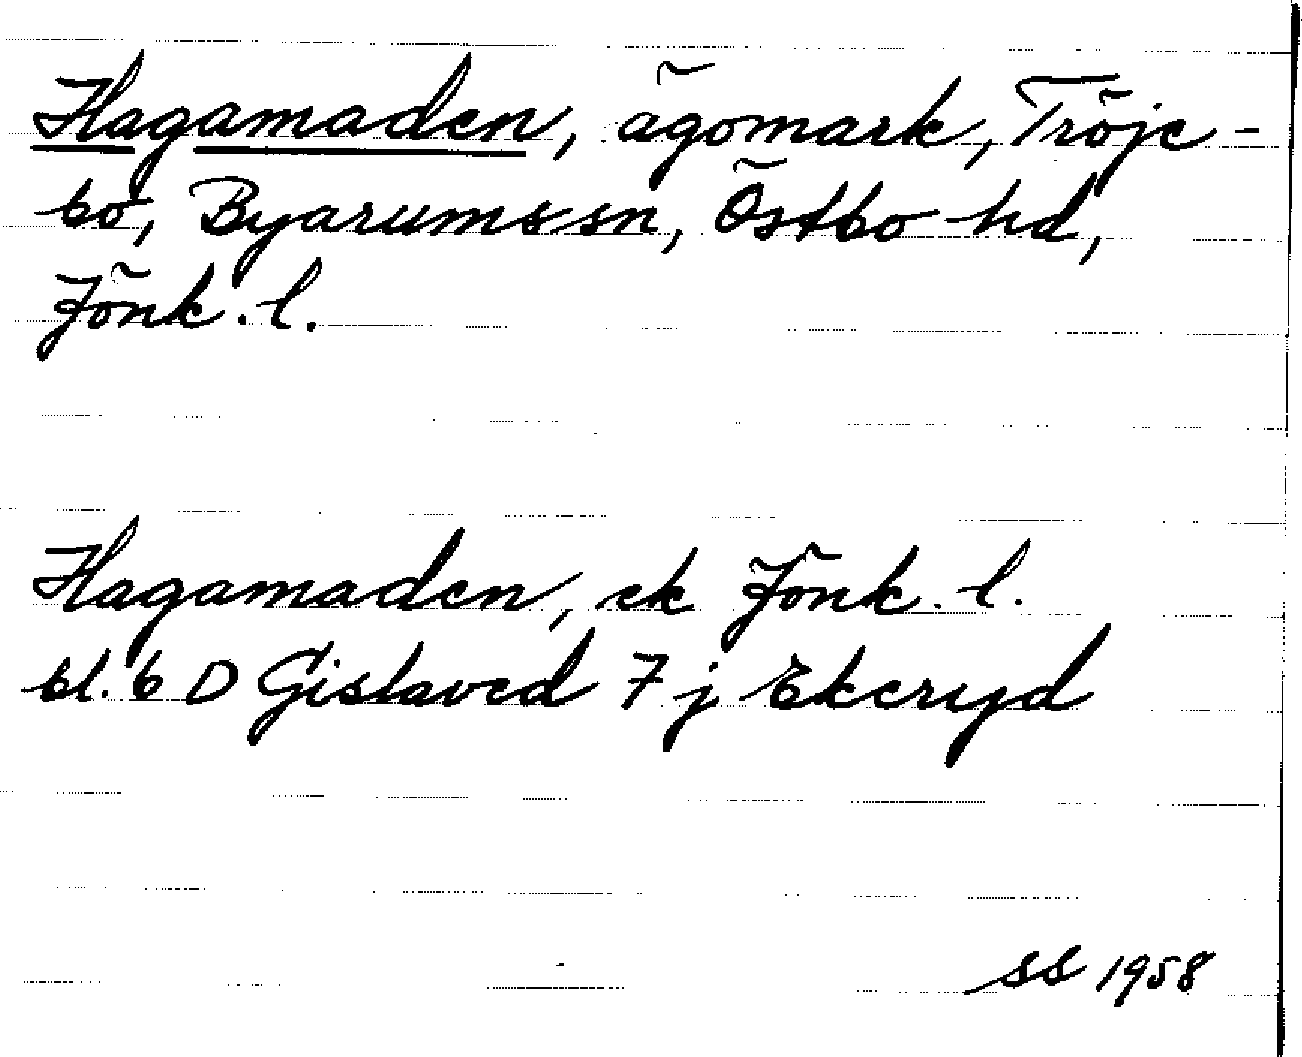 Hagamaden, ägomark, Tröje-
bo, Byarums sn, Östbo hd,
Jönk. l.
Hagamaden, ek Jönk. l.
bl. 6 D Gislaved 7 j Ekeryd
SS 1958